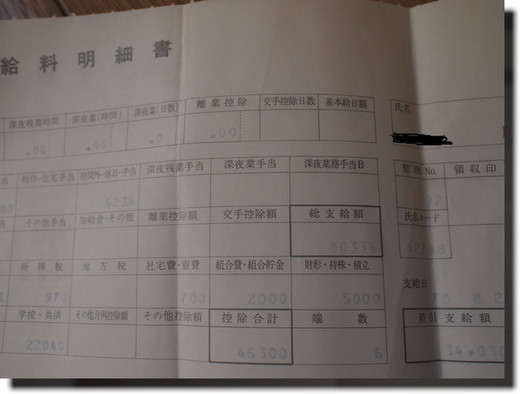 給料明細書
深夜残業時間 深夜業(時間) 深夜業(日数) 離業控除 交手控除日数 基本給日額 氏名
.00 .00 .00
物件・住宅手当 時間外・休日・手当 深夜残業手当 深夜業手当 深夜業務手当B 整理No. 領収印
6236
その他手当 加給金・その他 離業控除額 交手控除額 総支給額 氏名コード
80336
所得税 地方税 社宅費・寮費 組合費・組合貯金 財形・持株・積立 支給日
970 700 2000 5000
学校・共済 その他月例控除額 その他控除額 控除合計 端数 差引支給額
22040 46300 6 34,030